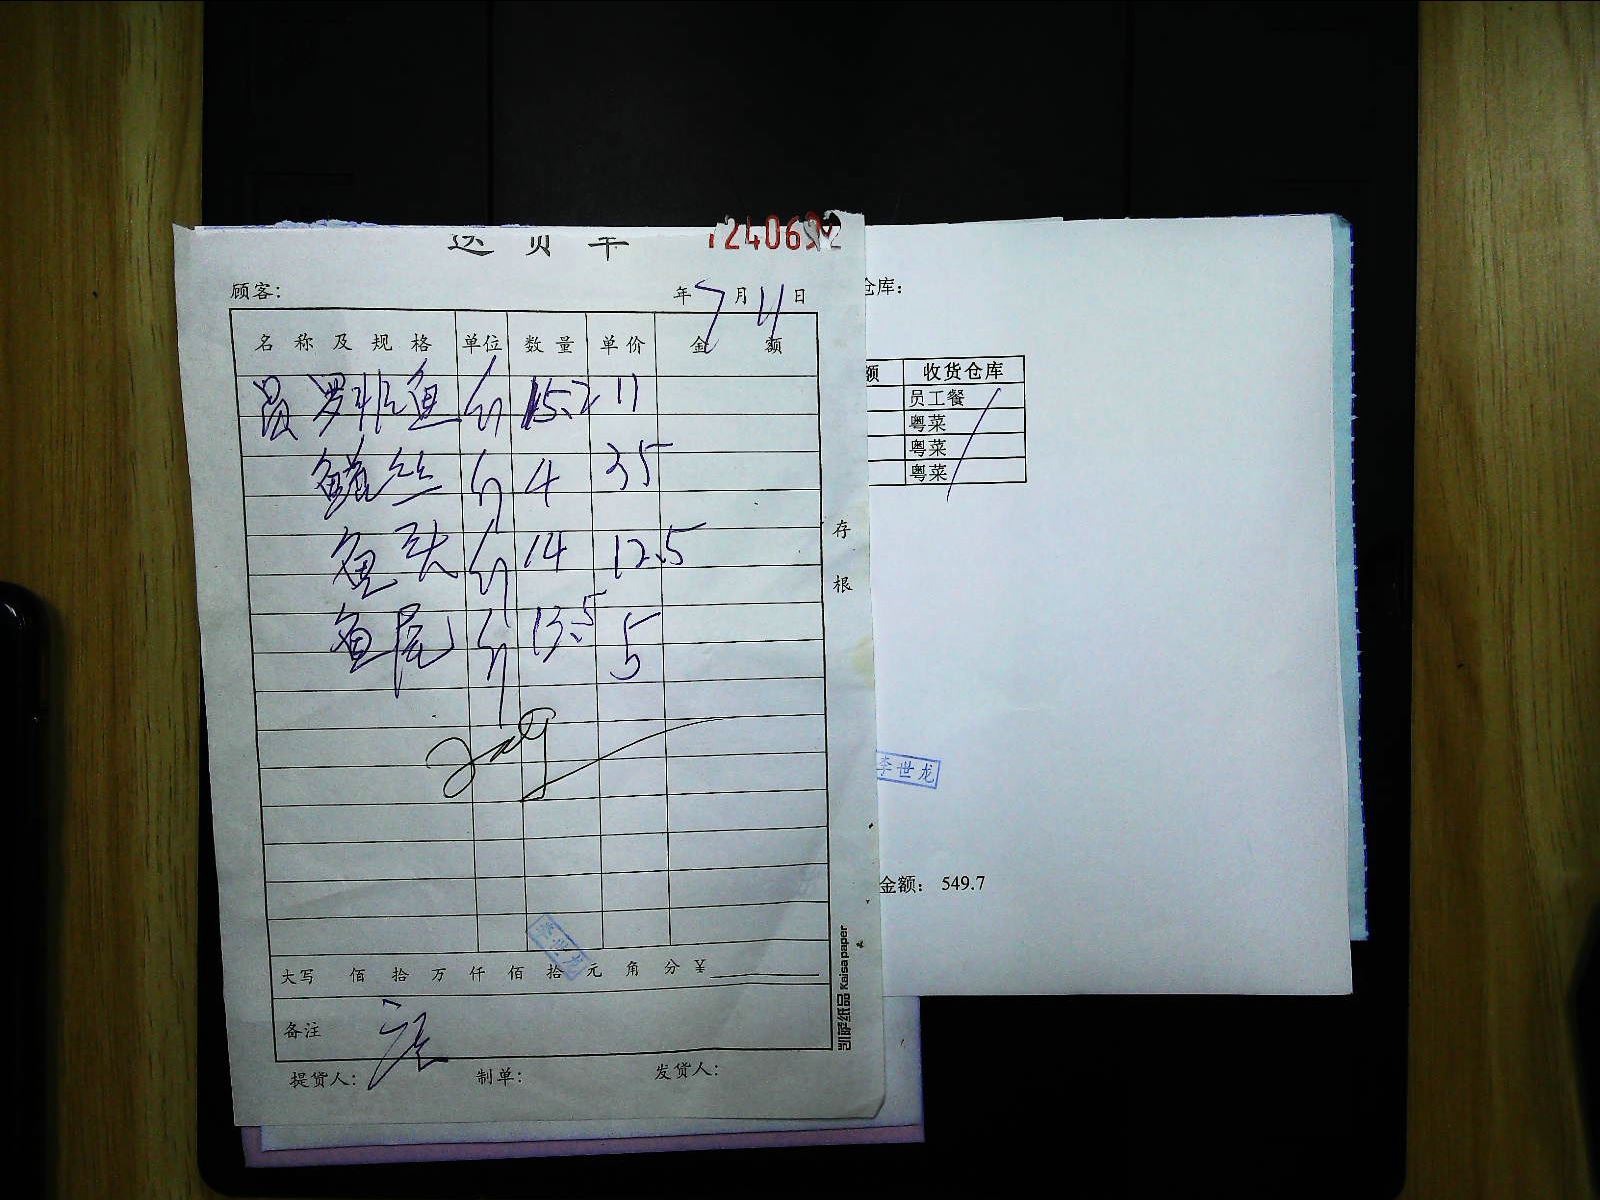 送货单
顾客: 年 7 月 11 日
名称及规格 单位 数量 单价 金额
员 罗非鱼 斤 15.2 11
鳝丝 斤 4 35
鱼头 斤 14 12.5
鱼尾 斤 13.5 5
李世龙
大写 佰 拾 万 仟 佰 拾 元 角 分 ¥
备注
提货人: 制单: 发货人:
存根
凯萨纸品 Kaisa paper
仓库:
额 收货仓库
员工餐
粤菜
粤菜
粤菜
李世龙
金额: 549.7